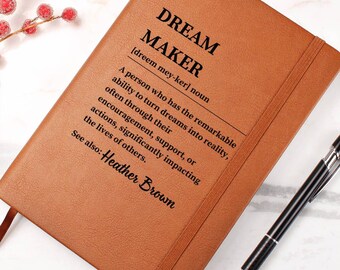 DREAM
MAKER
[dreem mey-ker] noun
A person who has the remarkable
ability to turn dreams into reality,
often through their
encouragement, support, or
actions, significantly impacting
the lives of others.
See also: Heather Brown